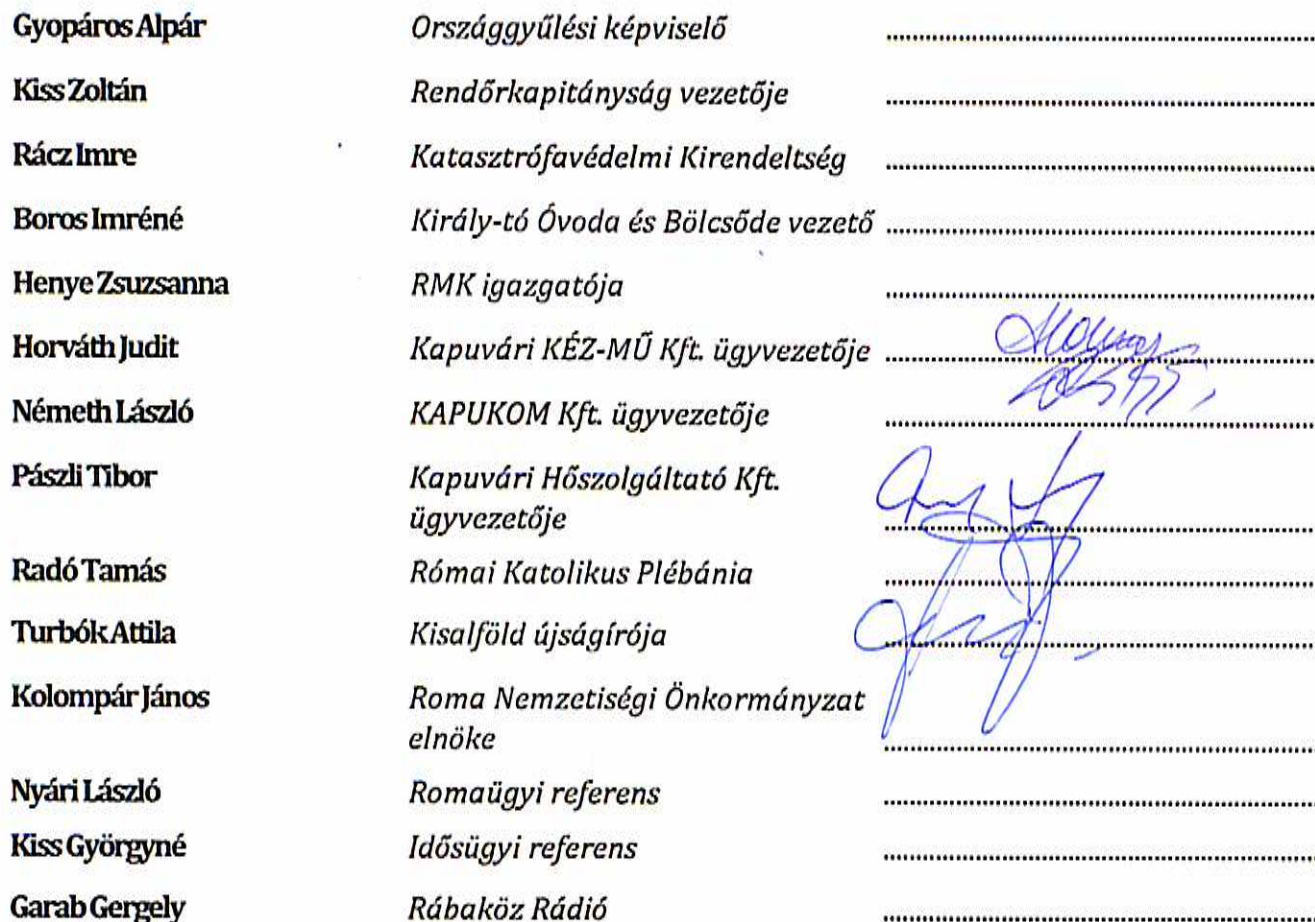 Gyopáros Alpár Országgyűlési képviselő ........................................
Kiss Zoltán Rendőrkapitányság vezetője ........................................
Rácz Imre Katasztrófavédelmi Kirendeltség ........................................
Boros Imréné Király-tó Óvoda és Bölcsőde vezető ........................................
Henye Zsuzsanna RMK igazgatója ........................................
Horváth Judit Kapuvári KÉZ-MŰ Kft. ügyvezetője ........................................
Németh László KAPUKOM Kft. ügyvezetője ........................................
Pászli Tibor Kapuvári Hőszolgáltató Kft.
ügyvezetője ........................................
Radó Tamás Római Katolikus Plébánia ........................................
Turbók Attila Kisalföld újságírója ........................................
Kolompár János Roma Nemzetiségi Önkormányzat
elnöke ........................................
Nyári László Romaügyi referens ........................................
Kiss Györgyné Idősügyi referens ........................................
Garab Gergely Rábaköz Rádió ........................................